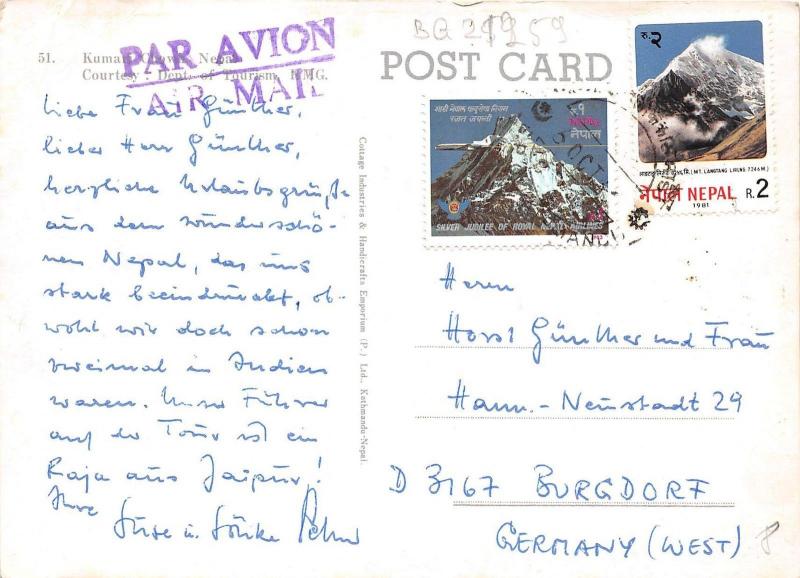 51. Kumari Chowk, Nepal
Courtesy : Dept. of Tourism, HMG.
PAR AVION
AIR MAIL
BQ
POST CARD
Liebe Frau Günther,
lieber Herr Günther,
herzliche Urlaubsgrüße
aus dem wunderschö-
nen Nepal, das uns
stark beeindruckt, ob-
wohl wir doch schon
zweimal in Indien
waren. Unser Führer
auf der Tour ist ein
Raja aus Jaipur!
Ihre
u. Sönke
Cottage Industries & Handicrafts Emporium (P.) Ltd., Kathmandu-Nepal.
रु. १
नेपाल
SILVER JUBILEE OF ROYAL NEPAL AIRLINES
OCT
रु. २
(MT. LANGTANG LIRUNG 7246M)
नेपाल NEPAL R. 2
1981
Herrn
Horst Günther und Frau
Hann.-Neustadt 29
D 3167 BURGDORF
GERMANY (WEST)